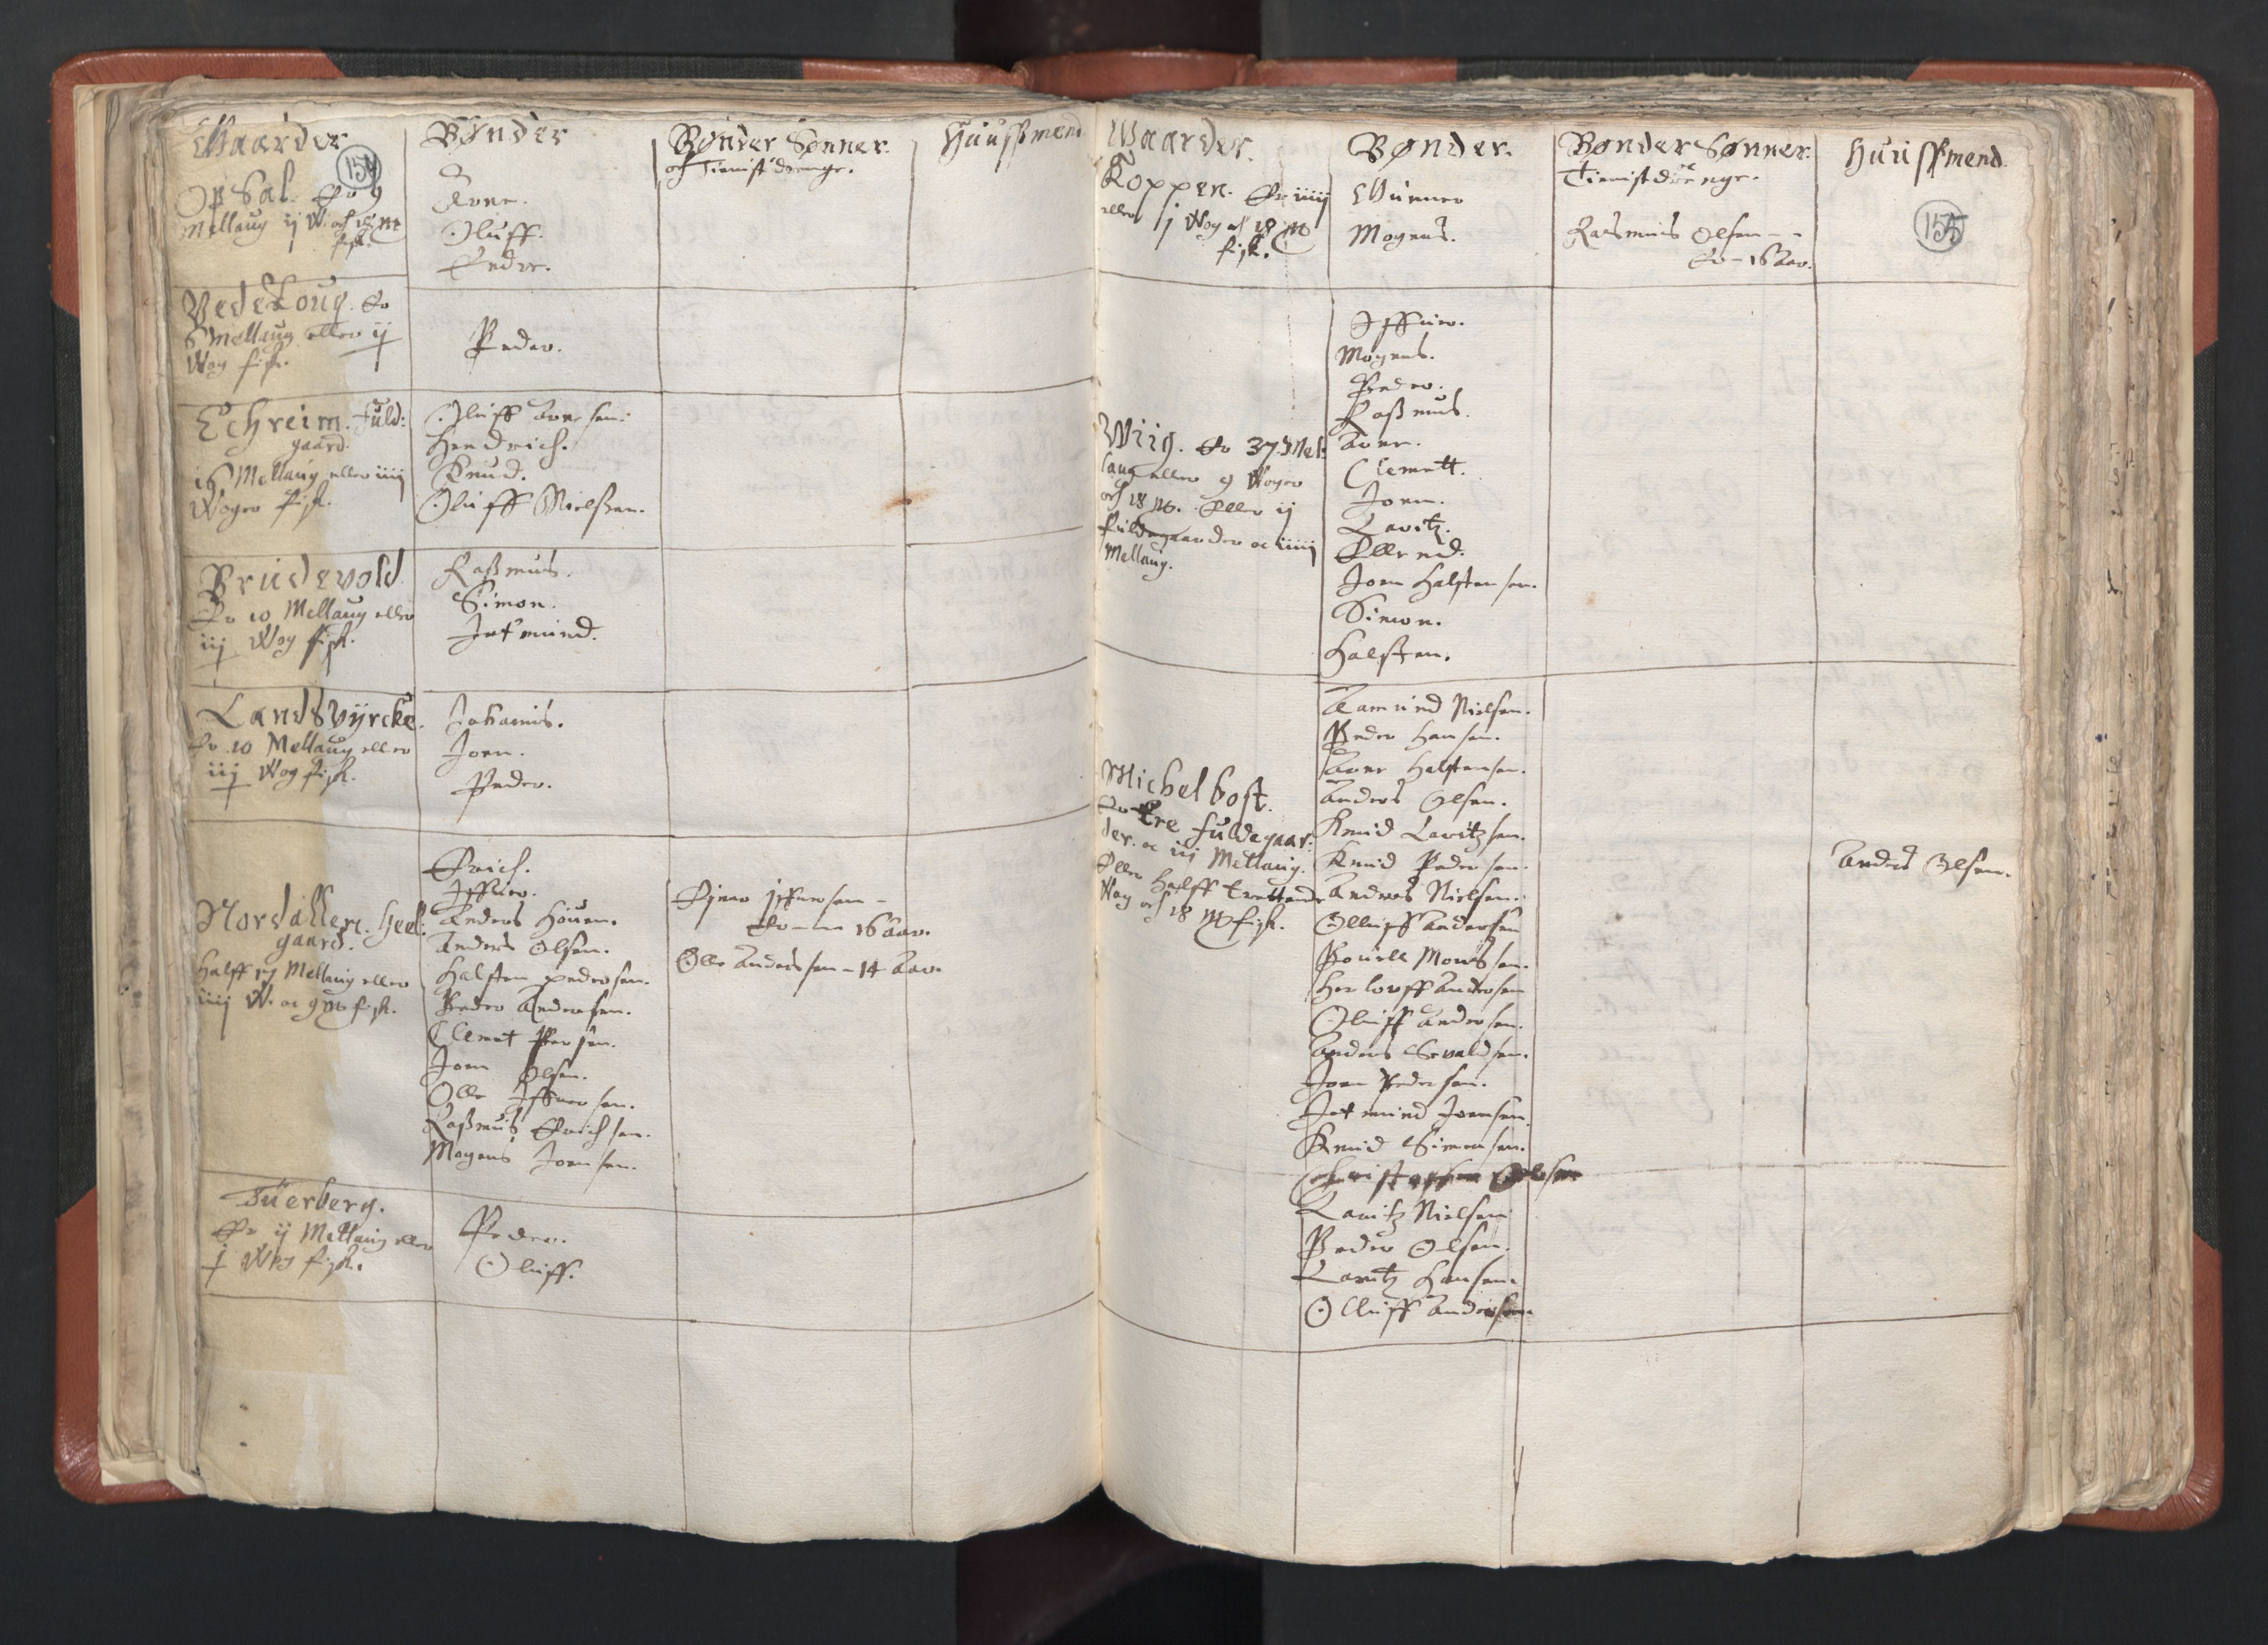 Gaarder
154
Bønder
Bønder Sønner.
och Tienist drenge.
Huussmend
Opsal. Er 9
Mellaug ij W. och 18 M
fisk.
Iver.
Oluff.
Peder.
VedeLoug. Er
6 Mellaug eller ij
Wog fisk.
Peder.
Echreim. Fuld:
gaard.
16 Mellaug eller iiij
Woger fisk.
Oluff Iversen.
Hendrich.
Knud.
Oluff Nielssen.
Brudevold
Er 10 Mellaug eller
iij Wog fisk.
Rassmus.
Simon.
Jetmund.
Landsvyrcke.
Er 10 Mellaug eller
iij Wog fisk.
Johannis.
Joen.
Peder.
Nordallen. Heel:
gaard.
Halff 17 Mellaug eller
iiij W. oc 9 M fisk.
Erich.
Iffuer.
Anders
Anders Olsen.
Halsten pedersen.
Peder Andersen.
Clemet Persen.
Joen Olsen.
Olle Iffuersen.
Rassmus Erichsen.
Mogens Joensen.
Iffuersen -
Er - 16 Aar.
Olle Anderssen - 14 Aar.
Tuerberg.
Er ij Mellaug eller
j Wog fisk.
Peder.
Oluff.
Gaarder.
Bønder.
Bønder Sønner.
oc
Tienist drenge.
Huussmend.
155
Koppen. Er iiiij
eller j Wog oc 18 M
fisk.
Gunner
Mogens.
Rasmus Olsen - -
Er - 16 Aar.
Wiig. Er 37 Mel:
laug eller 9 Woger
och 18 M. Eller ij
fuldegaarder oc iiiij
Mellaug.
Iffuer.
Mogens.
Peder.
Rassmus.
Iver.
Clemett.
Joen.
Lavritz.
Ellend.
Joen Halstensen.
Simon.
Halsten.
Michelbost.
Er tre fuldegaar:
der. oc iij Mellaug.
Eller halff trettende
Wog och 18 M fisk.
Aamund Nielsen.
Peder Hansen.
Iver Halstensen.
Anders Olsen.
Knud Lavritzsen.
Knud Pedersen.
Anders Nielsen.
Olluff Andersen
Povell Monssen.
Herloff Andersen
Oluff Andersen.
Anders Sevaldsen.
Joen Pedersen.
Jetmund Joensen.
Knud Simensen.
Christopher Olsen
Lavritz Nielsen
Peder Olsen.
Lavritz Hansen.
Olluff Andersen.
Anders Olsen.